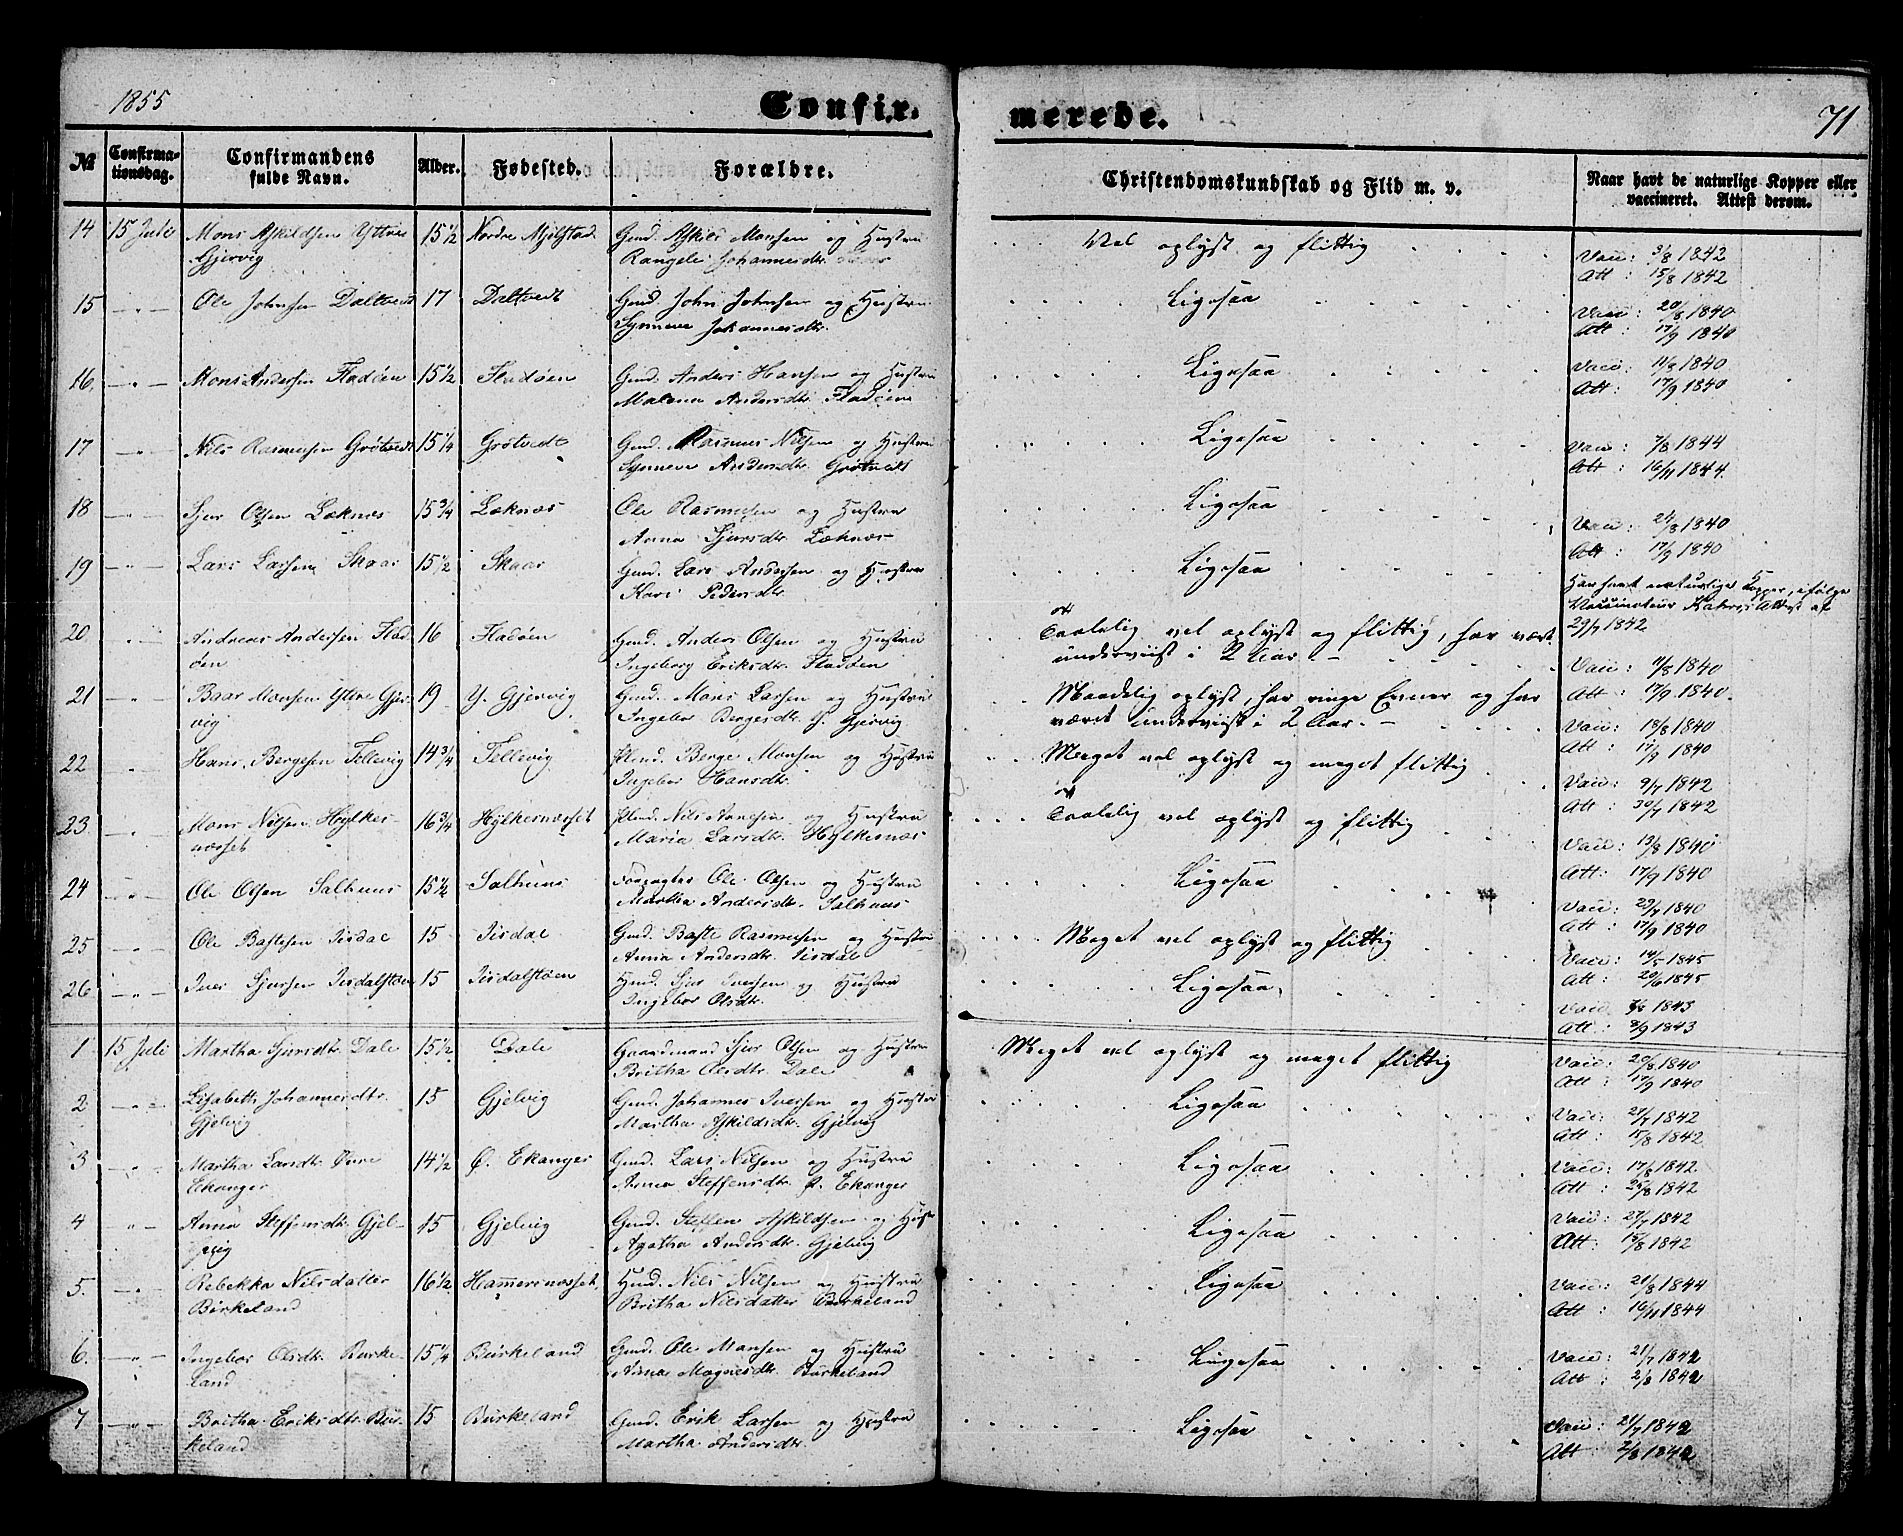 1855 Confir. merede. 71
№ Confirma- Confirmandens Alder. Fødested. Forældre. Christendomskundskab og Flid m. v. Naar havt de naturlige Kopper eller
tionsdag. fulde Navn. vaccineret. Attest derom.
14 15 Juli Mons Askildsen Yttre 15 1/2 Nordre Mjelstad Gmd. Askild Monsen og Hustru Vel oplyst og flittig Vacc: 3/8 1842
Gjervig Rangele Johannesdtr. Att : 15/8 1842
15 —„— Ole Johnsen Daltvedt 17 Daltvedt Gmd. John Johnsen og Hustru Ligesaa Vacc : 20/8 1840
Synneve Johannesdtr. Att : 17/9 1840
16. —„— Mons Andersen Fladöen 15 1/2 Fladöen Gmd. Anders Hansen og Hustru Ligesaa Vacc : 11/8 1840
Malena Andersdtr. Fladöen Att : 17/9 1840
17 —„— Nils Rasmussen Grötvedt 15 1/4 Grötvedt Gmd. Rasmus Nilsen og Hustru Ligesaa Vacc : 7/8 1844
Synneve Andersdtr. Grötvedt Att : 16/11 1844.
18 —„— Sjur Olsen Læknæs 15 3/4 Læknæs Ole Rasmussen og Hustru Ligesaa Vacc : 24/8 1840
Anna Sjursdtr. Læknæs Att : 17/9 1840
19 —„— Lars Larsen Skaar 15 1/2 Skaar Gmd. Lars Andersen og Hustru Ligesaa Har havt naturlige Kopper, ifølge
Kari Pedersdtr. Vaccinateur Attest af
29/7 1842
20 —„— Andreas Andersen Flad- 16 Fladöen Gmd. Anders Olsen og Hustru Taalelig vel oplyst og flittig, har vært
öen Ingeborg Eriksdtr. Fladöen underviist i 2 Aar. Vacc : 11/8 1840
21 —„— Baar Monsen Yttre Gjer- 19 Y. Gjervig Gmd. Mons Larsen og Hustru Maadelig oplyst, har ringe Evner og har Att : 17/9 1840.
vig Ingebor Bergesdtr. Y. Gjervig været underviist i 2 Aar. Vacc : 18/8 1840
22 —„— Hans Bergesen Tellevig 14 3/4 Tellevig Hmd. Berge Monsen og Hustru Meget vel oplyst og meget flittig Att : 17/9 1840
Ingebor Hansdtr. Vacc : 9/7 1842
23 —„— Mons Nilsen Hylkes- 16 3/4 Hylkesnæsset Hmd. Nils Arnesen og Hustru Taalelig vel oplyst og flittig Att : 30/7 1842
næsset Maria Larsdtr. Hylkesnæs Vacc : 13/8 1840
24 —„— Ole Olsen Salhuus 15 1/2 Salhuus Forpagter Ole Olsen og Hustru Ligesaa Att : 17/9 1840
Martha Andersdtr. Salhuus Vacc : 29/7 1840
25 —„— Ole Bastesen Isdal 15 Isdal Gmd. Baste Rasmussen og Hustru Meget vel oplyst og flittig Att : 17/9 1840
Anna Andersdtr. Isdal Vacc : 14/5 1845
26 —„— Iver Sjursen Isdalstöen 15 Isdalstöen Hmd. Sjur Iversen og Hustru Ligesaa Att : 20/6 1845
Ingebor Olsdtr. Vacc 1843
Att : 2/9 1843
1 15 Juli Martha Sjursdtr. Dale 15 1/2 Dale Gaardmand Sjur Olsen og Hustru Meget vel oplyst og meget flittig Vacc : 20/8 1840
Britha Olsdtr. Dale Att : 17/9 1840
2 —„— Lisabeth Johannesdtr. 15 Gjelvig Gmd. Johannes Iversen og Hustru Ligesaa Vacc : 21/7 1842
Gjelvig Martha Askildsdtr. Gjelvig Att : 15/8 1842
3 —„— Martha Larsdtr. Øvre 14 1/2 Ø. Ekanger Gmd. Lars Nilsen og Hustru Ligesaa Vacc : 17/8 1842
Ekanger Anna Steffensdtr. Ø. Ekanger Att : 25/8 1842
4 —„— Anna Steffensdtr. Gjel- 15 Gjelvig Gmd. Steffen Askildsen og Hustr Ligesaa Vacc : 27/7 1842
vig Agatha Andersdtr. Gjelvig Att : 15/8 1842
5. —„— Rebekka Nilsdatter 16 1/2 Hammersnæsset Hmd. Nils Nilsen og Hustru Ligesaa Vacc : 21/8 1844
Birkeland Britha Nilsdatter Birkeland Att : 16/11 1844
6. —„— Ingebor Olsdtr. Birke- 15 1/4 Birkeland Gmd. Ole Monsen og Hustru Ligesaa Vacc : 21/7 1842
land Anna Magnesdtr. Birkeland Att : 2/8 1842
7 —„— Britha Eriksdtr. Bir- 15 Birkeland Gmd. Erik Larsen og Hustru Ligesaa Vacc : 21/7 1842
keland Martha Andersdtr. Att : 2/8 1842